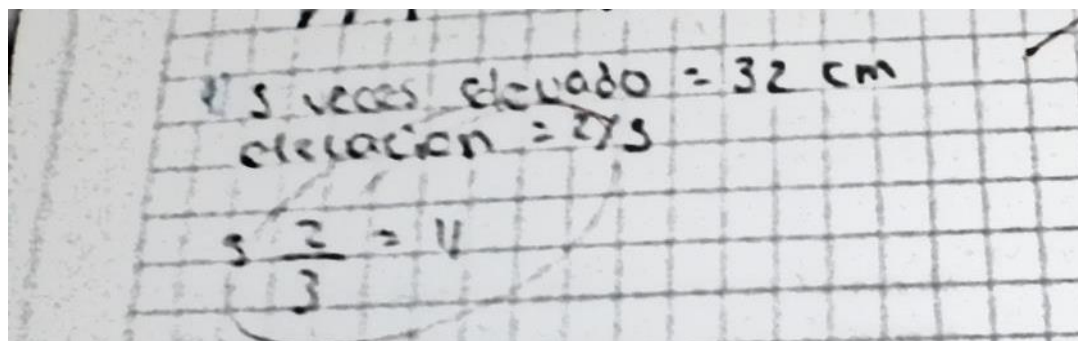 5 veces elevado = 32 cm
elevacion = 2/3
3 2/3 = 11